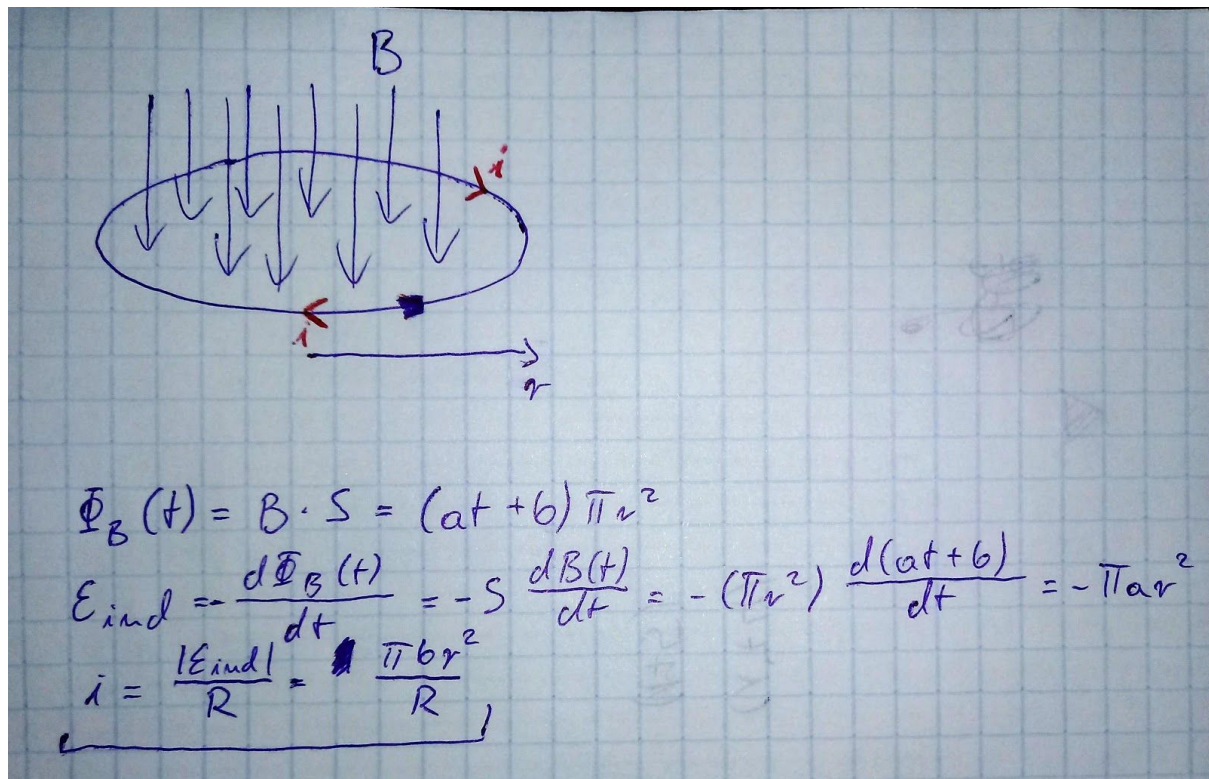 B
i
i
r
Φ_B (t) = B · S = (at + b) πr²
ε_ind = - dΦ_B (t)/dt = - S dB(t)/dt = - (πr²) d(at + b)/dt = - πar²
i = |ε_ind|/R = πbr²/R